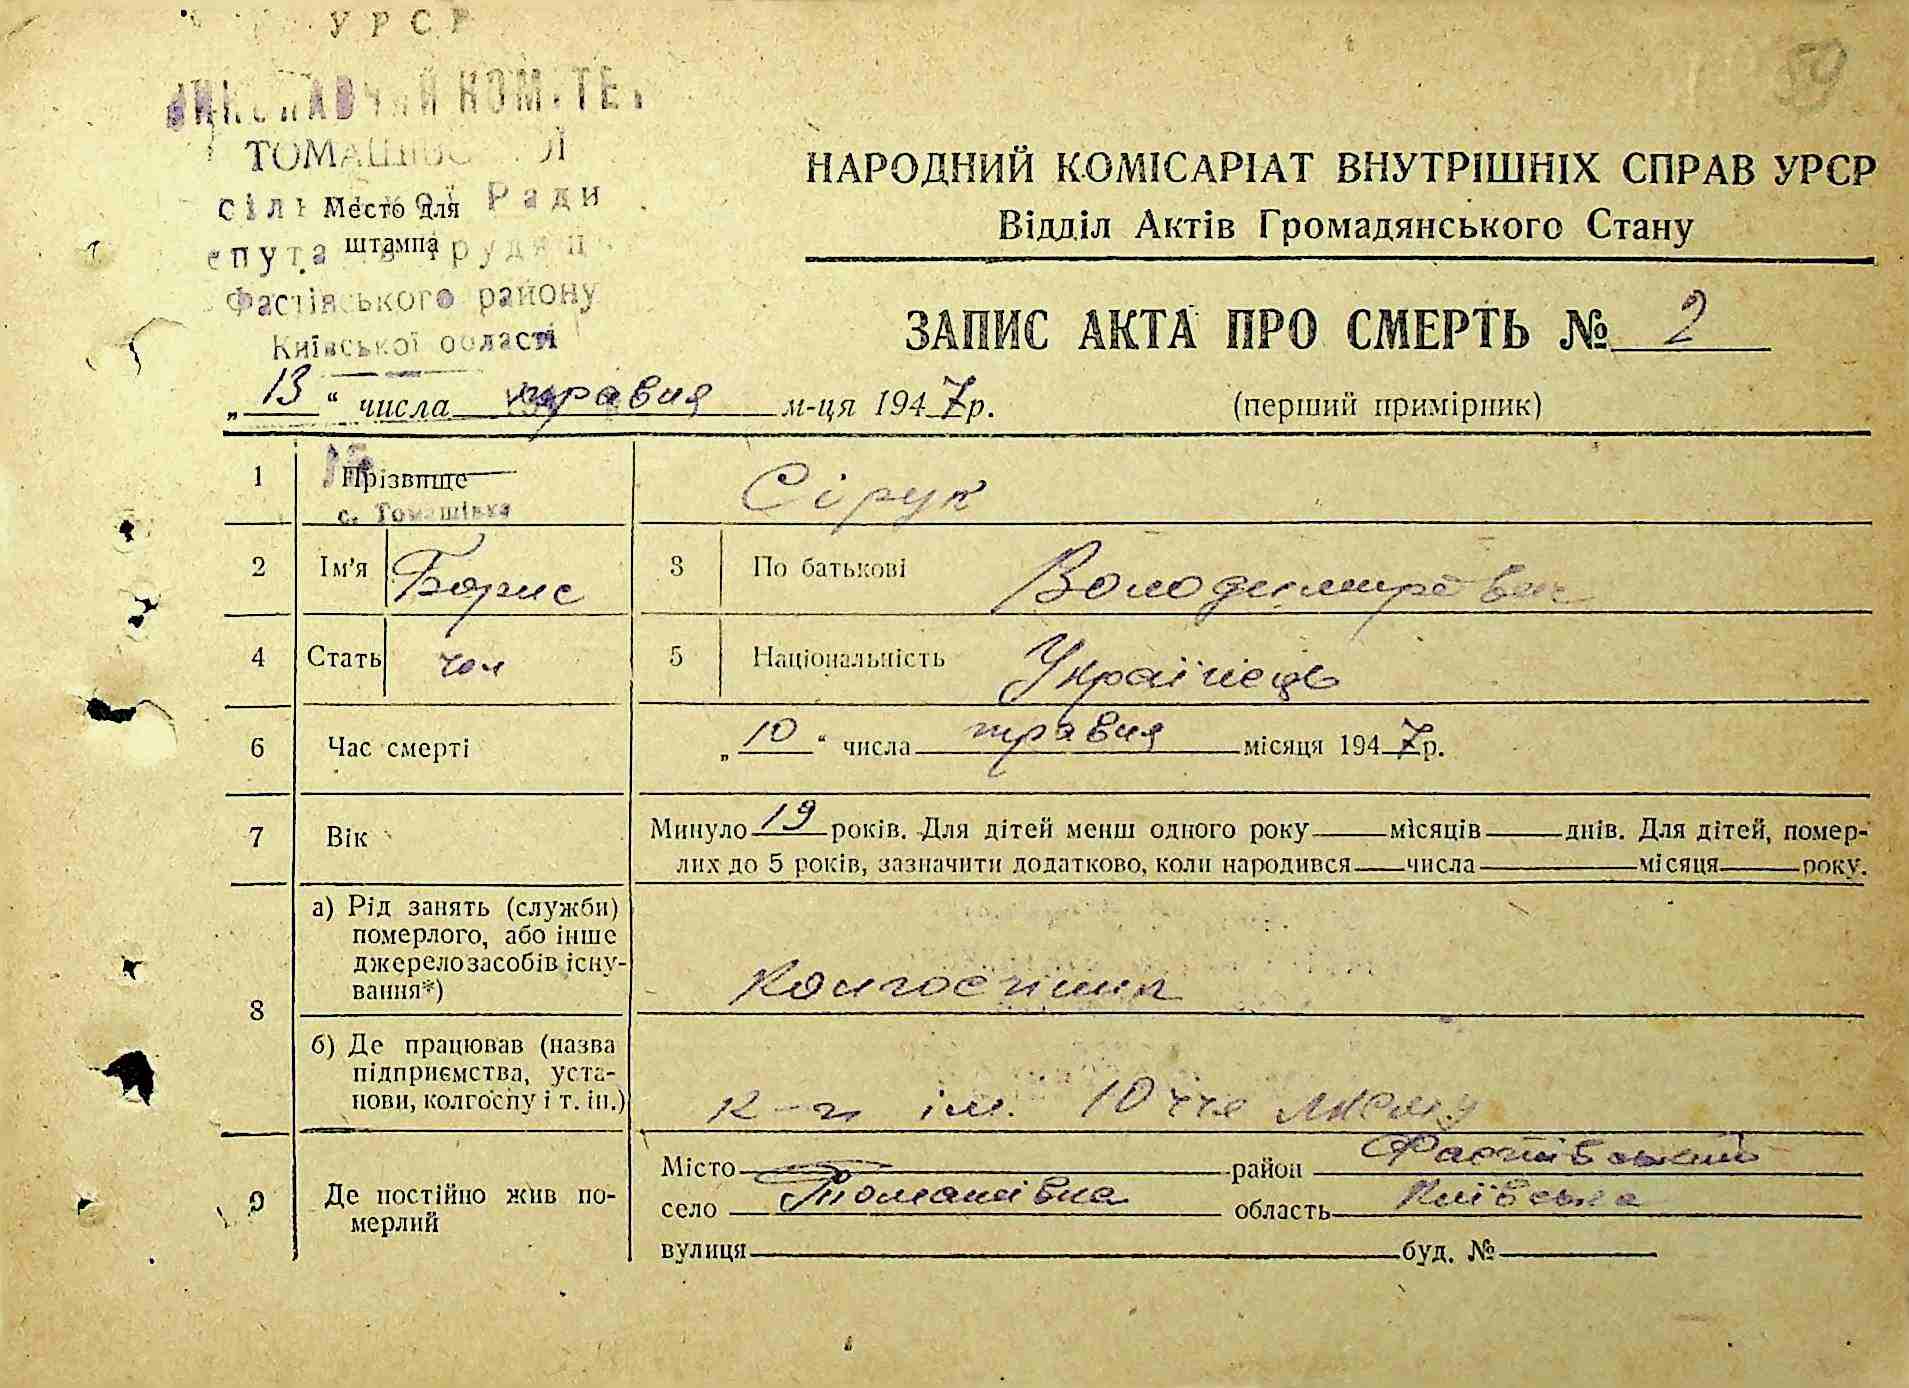 УРСР
ВИКОНАВЧИЙ КОМІТЕТ
ТОМАШІВСЬКОЇ
сільської Ради
Место для
штампа
депутатів трудящих
Фастівського району
Київської області
59
НАРОДНИЙ КОМІСАРІАТ ВНУТРІШНІХ СПРАВ УРСР
Відділ Актів Громадянського Стану
ЗАПИС АКТА ПРО СМЕРТЬ № 2
„13“ числа травня м-ця 1947 р. (перший примірник)
1 Прізвище Сірук
с. Томашівка
2 Ім'я Борис 3 По батькові Володимирович
4 Стать чол 5 Національність Українець
6 Час смерті „10“ числа травня місяця 1947 р.
7 Вік Минуло 19 років. Для дітей менш одного року — місяців — днів. Для дітей, помер-
лих до 5 років, зазначити додатково, коли народився — числа — місяця — року.
8 а) Рід занять (служби)
померлого, або інше
джерело засобів існу-
вання*) Колгоспник
б) Де працював (назва
підприємства, уста-
нови, колгоспу і т. ін.) к-п ім. 10 ччя ЛКСМУ
9 Де постійно жив по-
мерлий
Місто — район Фастівський
село Томашівка область Київська
вулиця — буд. № —